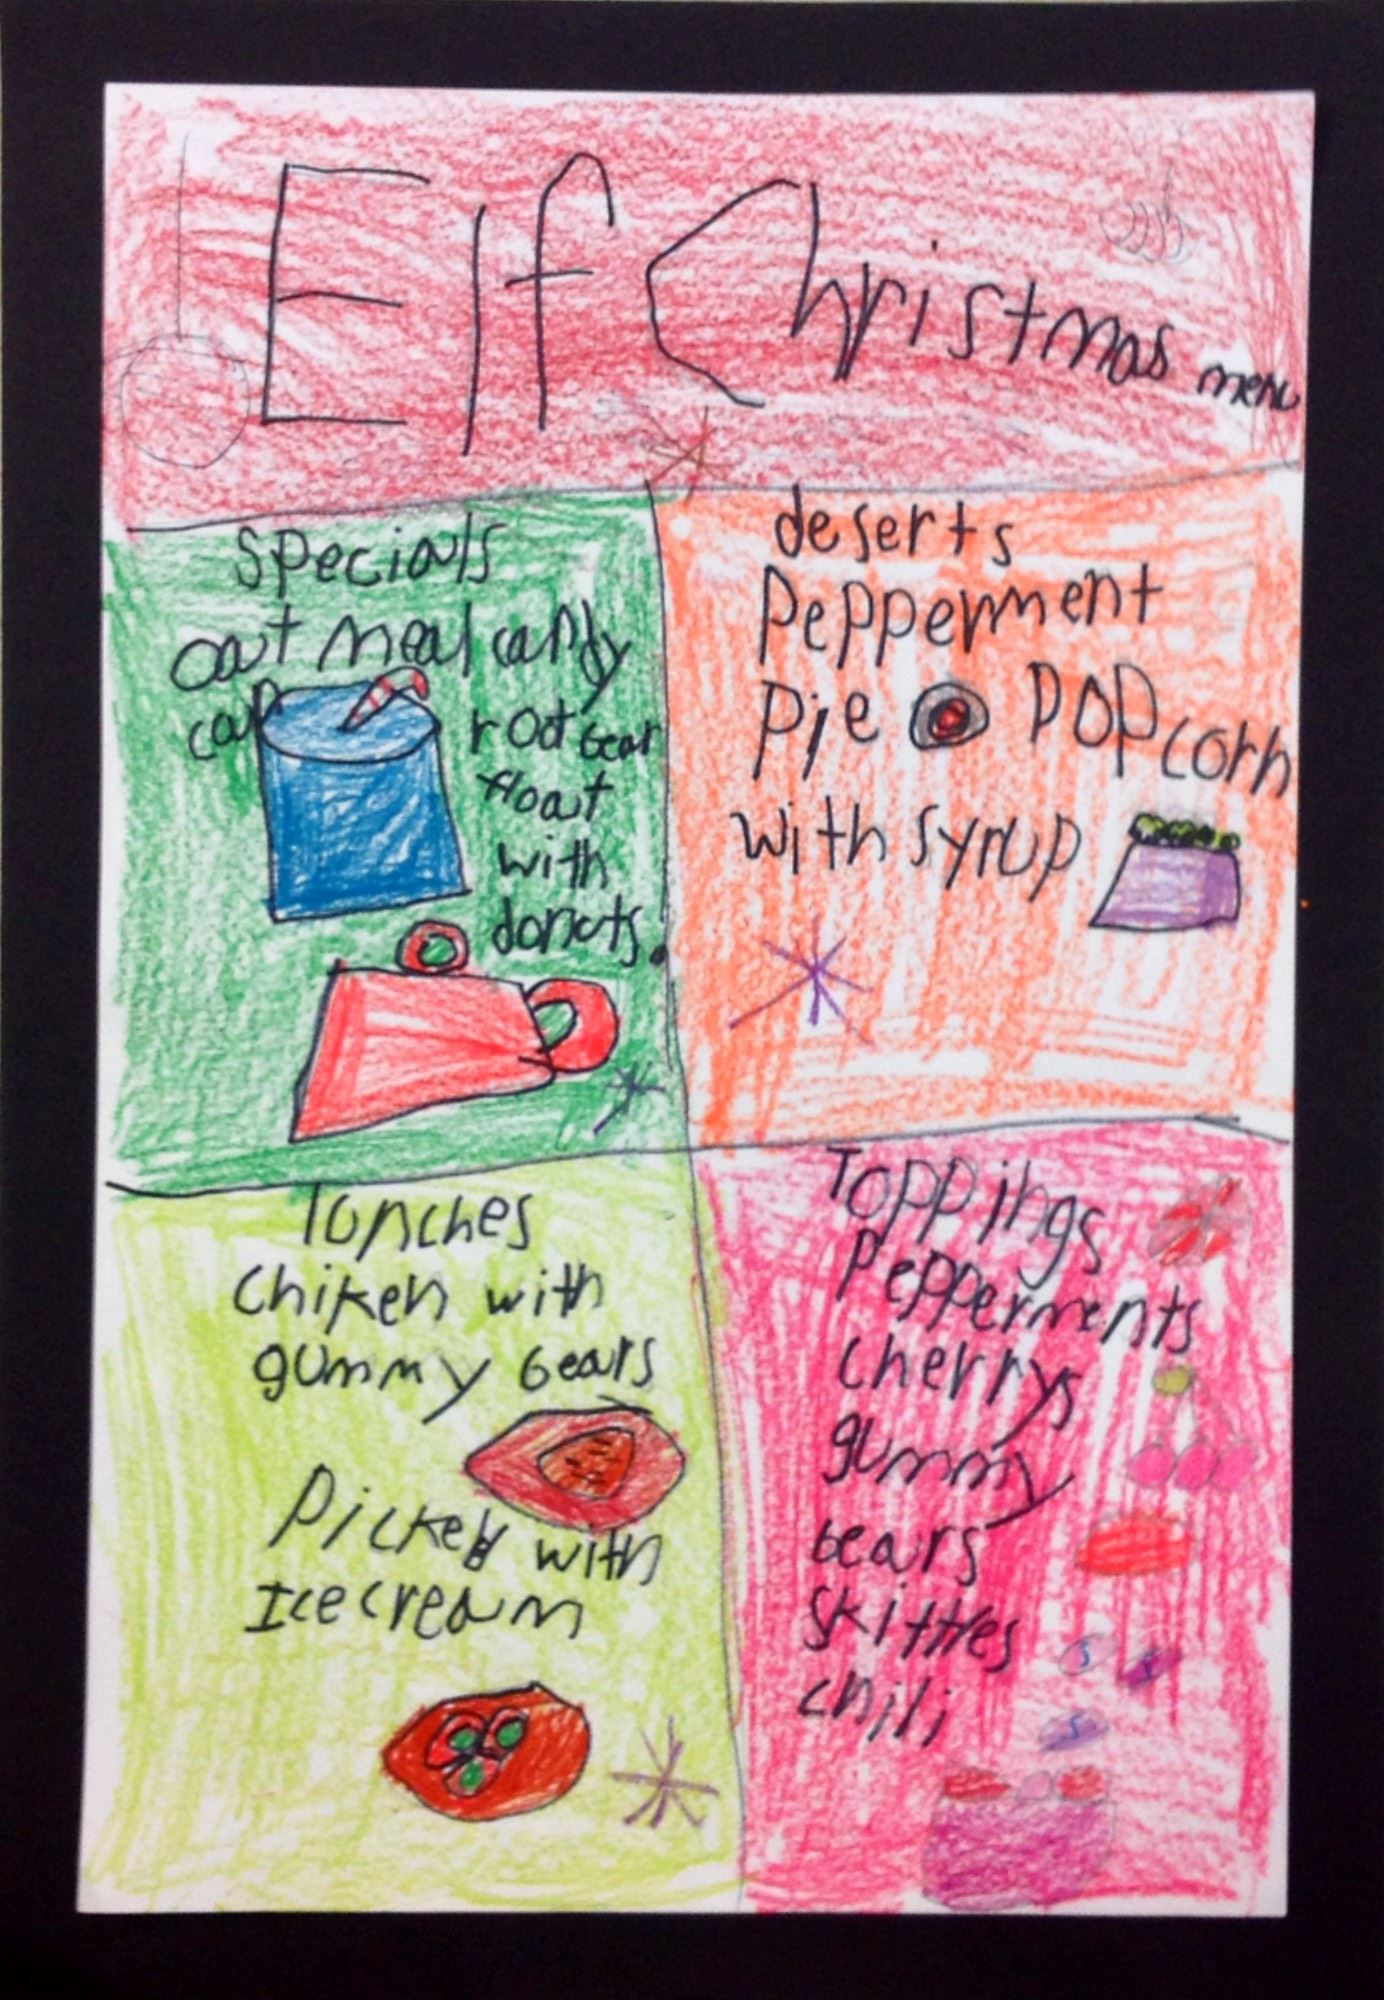 Elf Christmas menu
Specials
oatmeal candy
cap
root bear
float
with
donuts.
deserts
Pepperment
Pie Popcorn
with syrup
lunches
Chiken with
gummy bears
Pickel with
Icecream
Toppings
Pepperments
cherrys
gummy
bears
skittles
chili